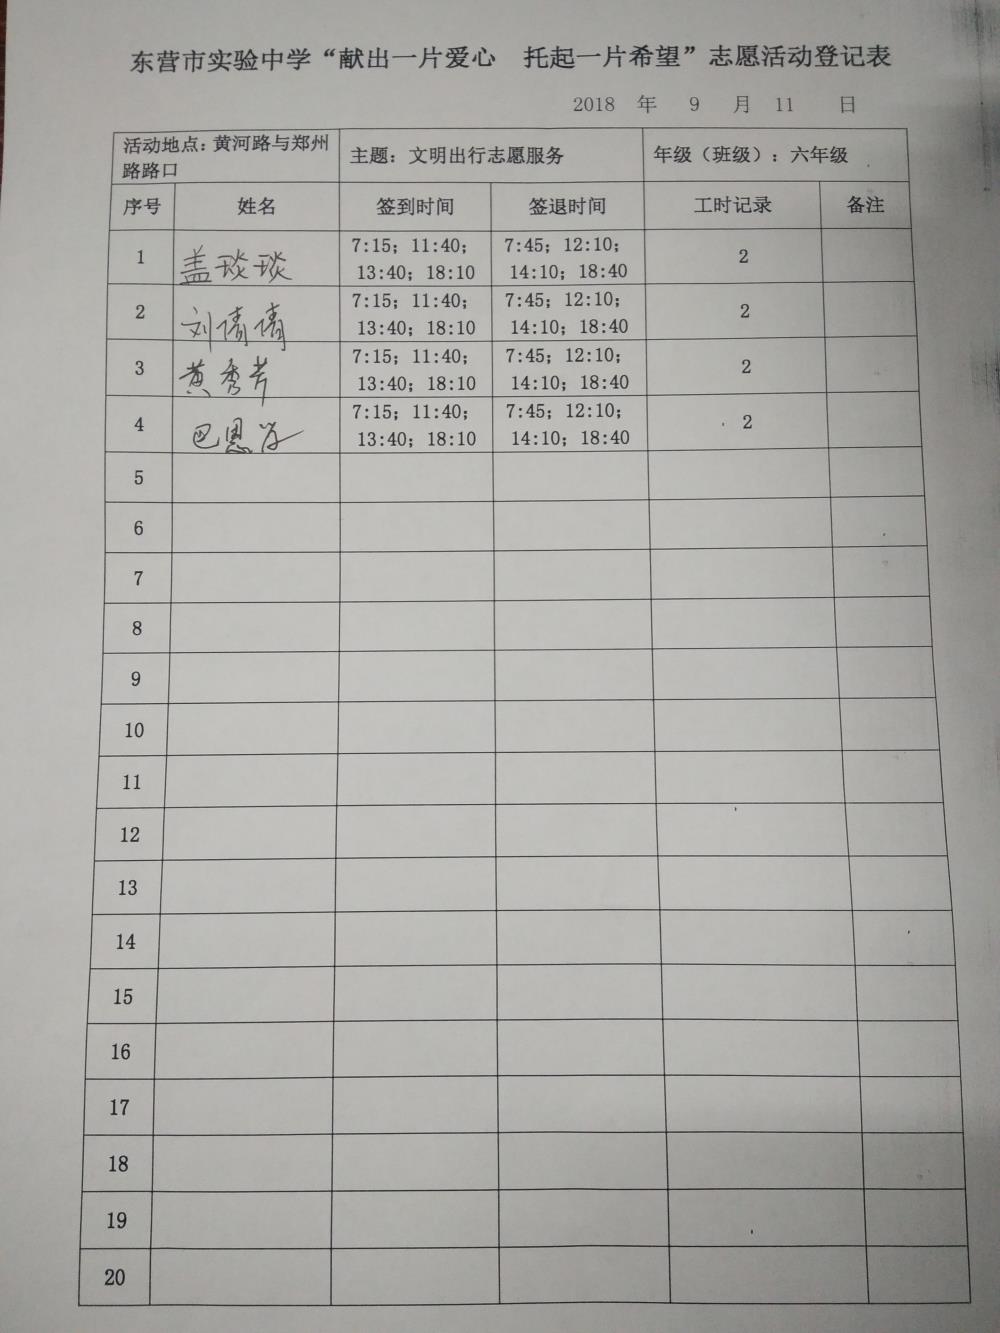 东营市实验中学“献出一片爱心 托起一片希望”志愿活动登记表
2018 年 9 月 11 日
活动地点：黄河路与郑州路路口 主题：文明出行志愿服务 年级（班级）：六年级
序号 姓名 签到时间 签退时间 工时记录 备注
1 盖琰琰 7:15；11:40；13:40；18:10 7:45；12:10；14:10；18:40 2
2 刘倩倩 7:15；11:40；13:40；18:10 7:45；12:10；14:10；18:40 2
3 黄秀芹 7:15；11:40；13:40；18:10 7:45；12:10；14:10；18:40 2
4 巴恩 7:15；11:40；13:40；18:10 7:45；12:10；14:10；18:40 2
5
6
7
8
9
10
11
12
13
14
15
16
17
18
19
20